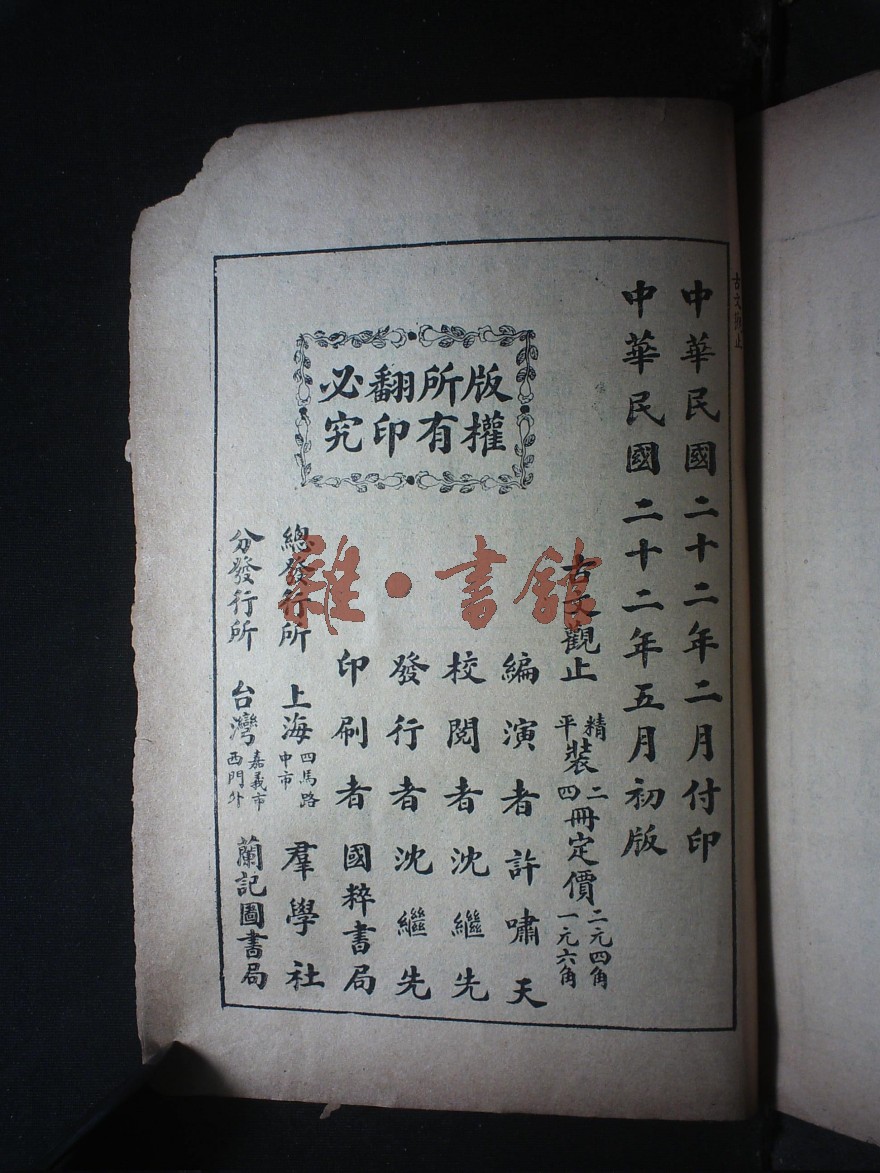 中華民國二十二年二月付印
中華民國二十二年五月初版
古文觀止 精平裝 二四冊定價 二元四角 一元六角
編演者許嘯天
校閱者沈繼先
發行者沈繼先
印刷者國粹書局
總發行所 上海 四馬路中市 羣學社
分發行所 台灣 嘉義市西門外 蘭記圖書局
版權
所有
翻印
必究
雜·書館
古文觀止